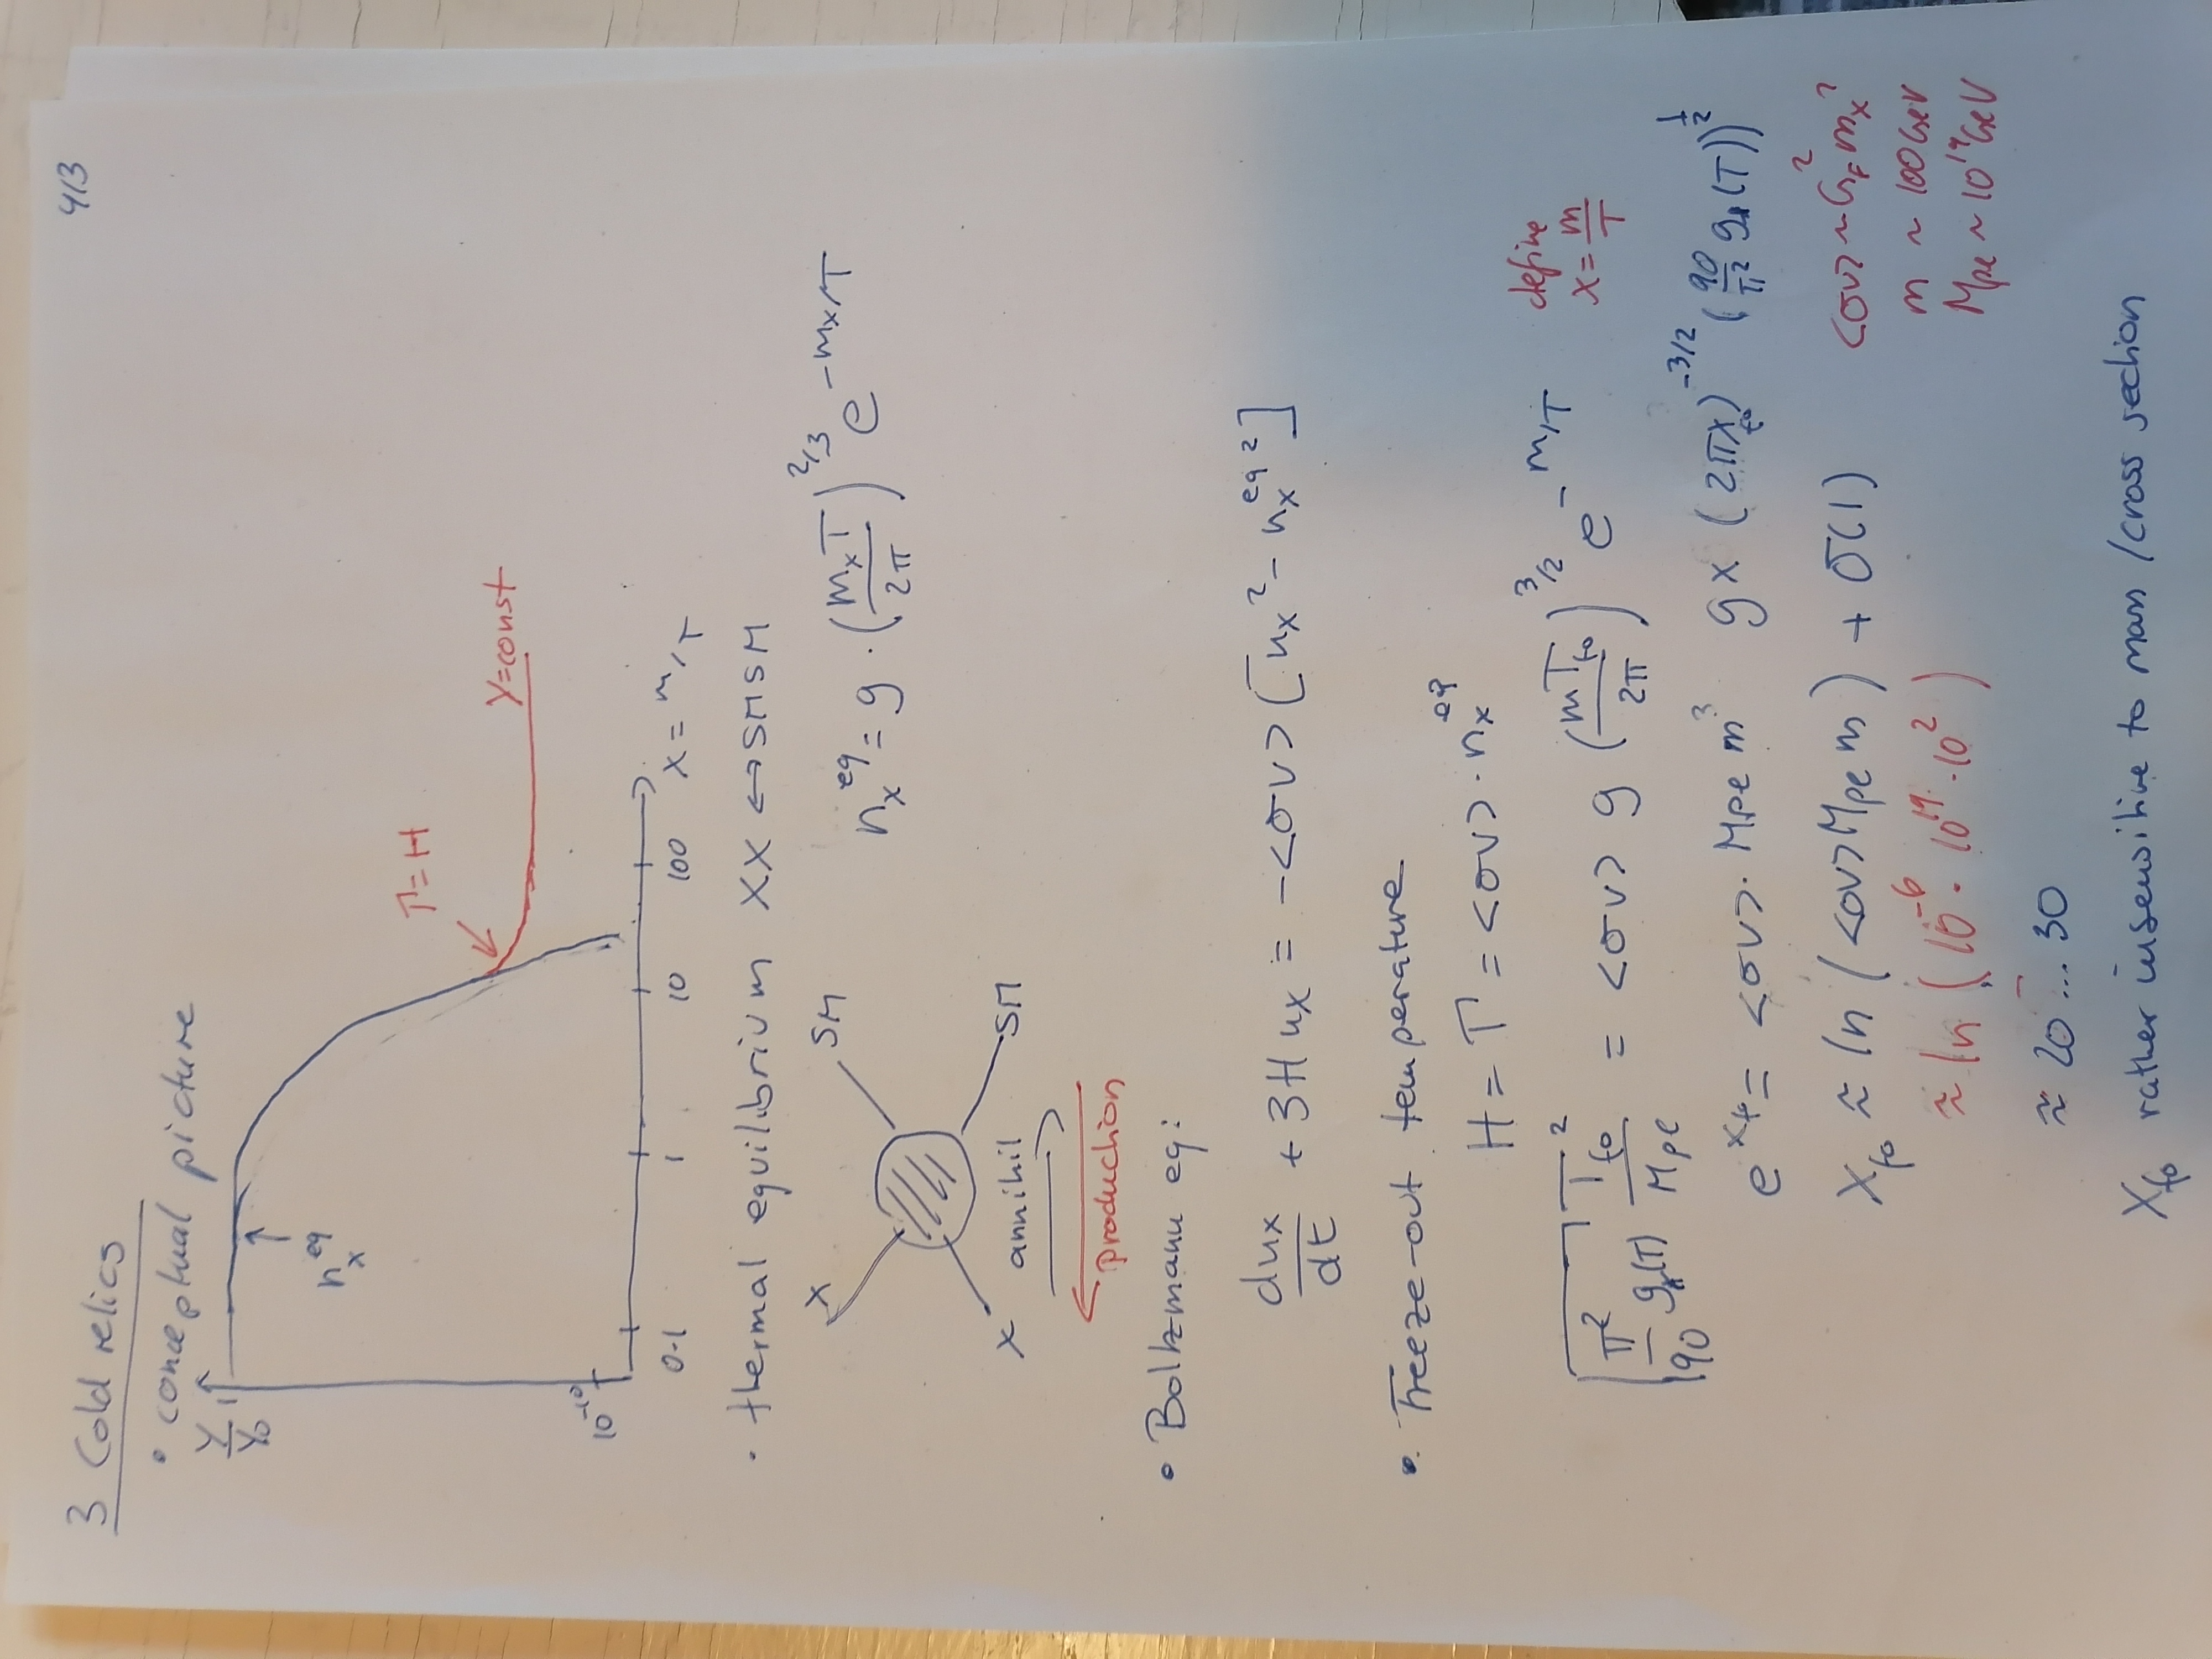 4/3
3 Cold relics
• conceptual picture
Y/Y₀
1
n_x^eq
Γ=H
Y=const
10^-10
0.1 1 10 100 x = m/T
• thermal equilibrium XX ↔ SMSM
X SM
X SM
annihil
production
n_x^eq = g · (m_x T / 2π)^2/3 e^-m_x/T
• Boltzmann eq:
dn_x/dt + 3H n_x = -<σv> [n_x^2 - n_x^eq 2]
• Freeze-out temperature
H = Γ = <σv> · n_x^eq
define
x = m/T
√(π²/90 g_*(T)) T_fo^2/M_pl = <σv> g (m T_fo / 2π)^3/2 e^-m/T
e^x_f = <σv> · M_pl m³ g x (2π x_fo)^-3/2 (90/π² g_*(T))^1/2
x_fo ≈ ln (<σv> M_pl m) + O(1)
<σv> ~ G_F^2 m_x^2
≈ ln (10^-6 · 10^19 · 10^2)
m ~ 100 GeV
M_pl ~ 10^19 GeV
≈ 20 ... 30
x_fo rather insensitive to mass / cross section